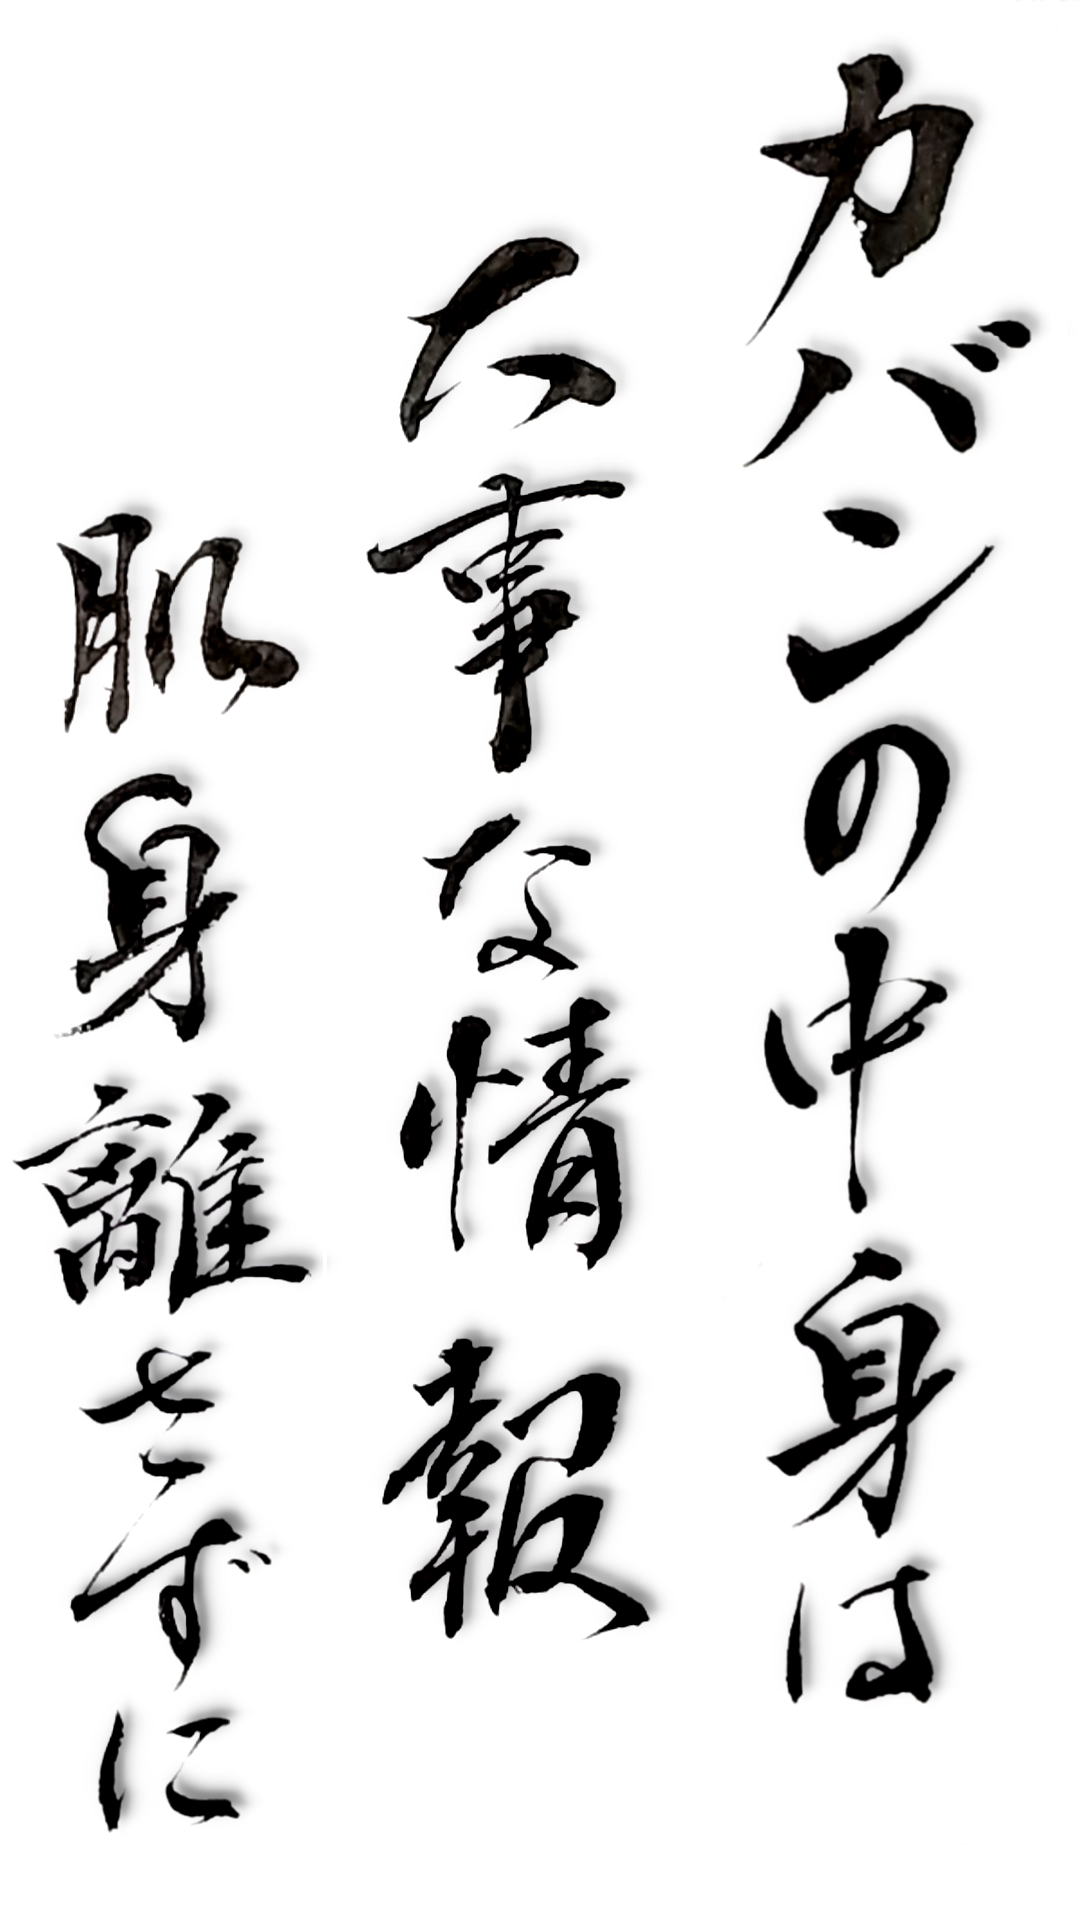 カバンの中身は
大事な情報
肌身離さずに